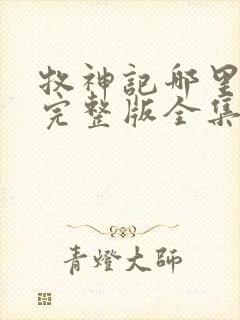 牧神記哪里
完整版全集
青燈大師